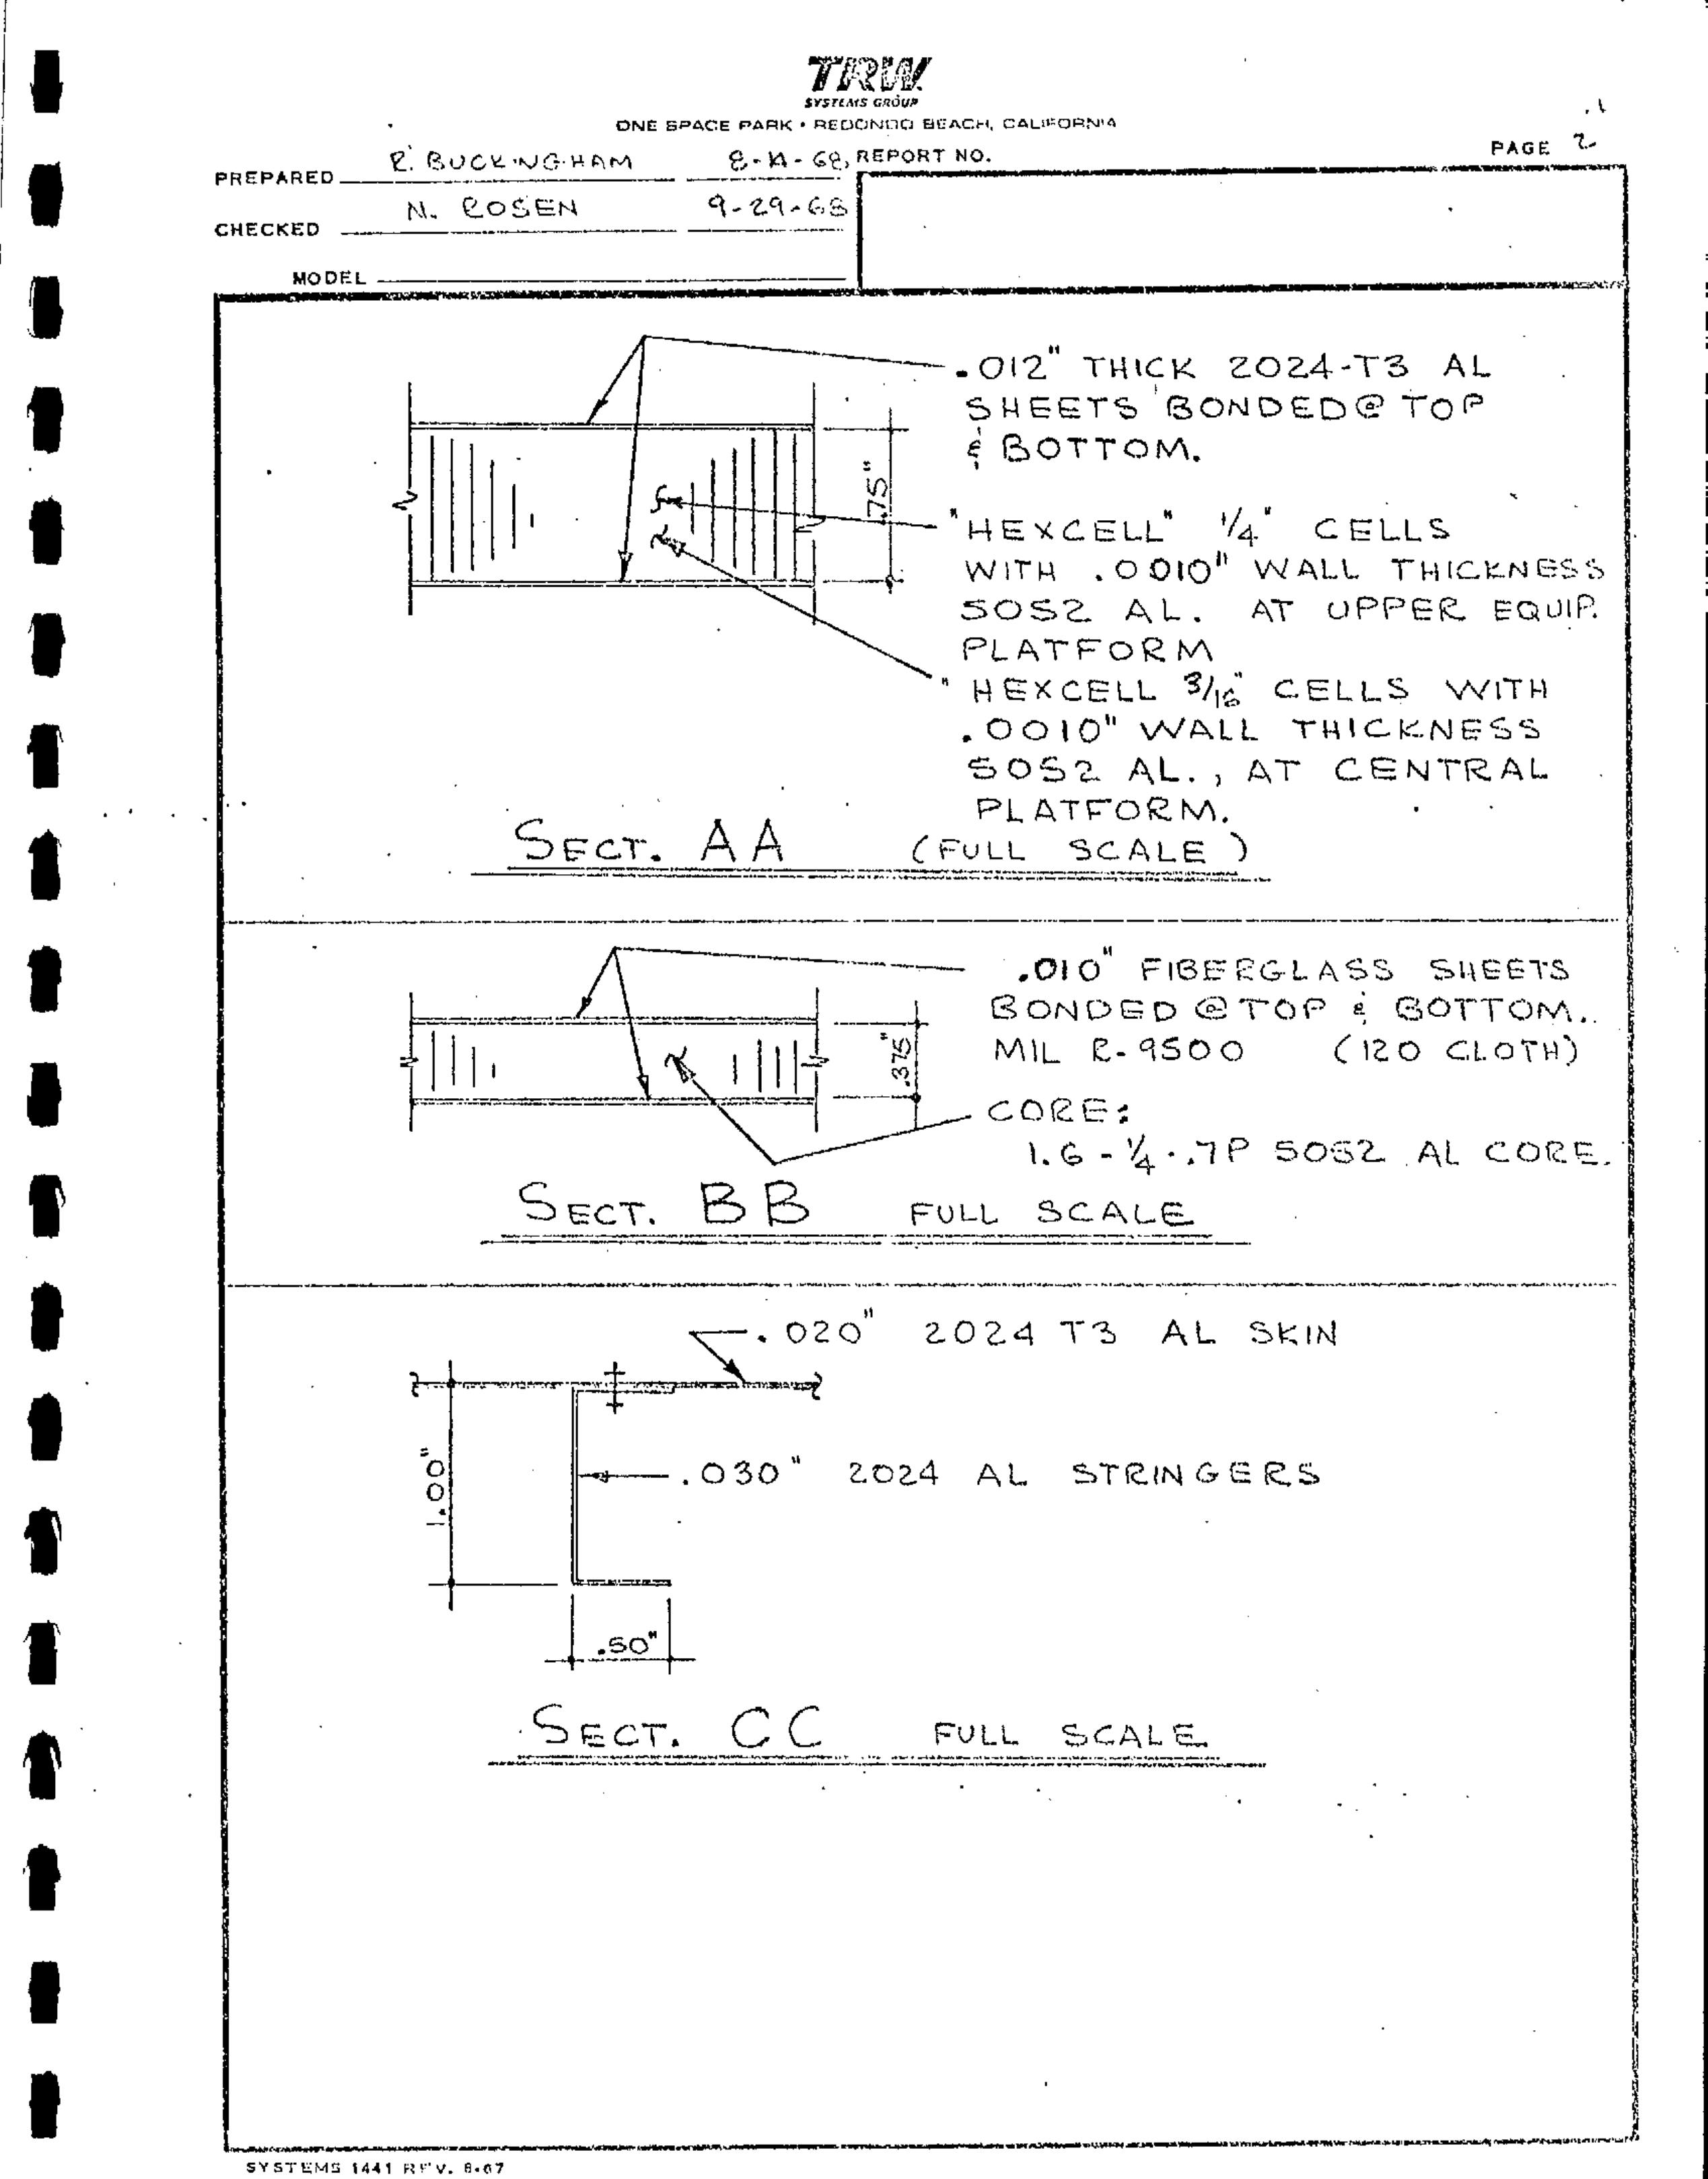 TRW
SYSTEMS GROUP
ONE SPACE PARK • REDONDO BEACH, CALIFORNIA
PAGE 2
PREPARED R. BUCKINGHAM REPORT NO.
CHECKED N. ROSEN 9-29-68
MODEL
.012" THICK 2024-T3 AL
SHEETS BONDED @ TOP
& BOTTOM.
.75"
"HEXCELL" 1/4" CELLS
WITH .0010" WALL THICKNESS
5052 AL. AT UPPER EQUIP.
PLATFORM
"HEXCELL 3/16" CELLS WITH
.0010" WALL THICKNESS
5052 AL., AT CENTRAL
PLATFORM.
SECT. AA (FULL SCALE)
.010" FIBERGLASS SHEETS
BONDED @ TOP & BOTTOM.
MIL R-9500 (120 CLOTH)
.375"
CORE:
1.6 - 1/4 - .7P 5052 AL CORE.
SECT. BB FULL SCALE
.020" 2024 T3 AL SKIN
1.00"
.030" 2024 AL STRINGERS
.50"
SECT. CC FULL SCALE
SYSTEMS 1441 REV. 8-67